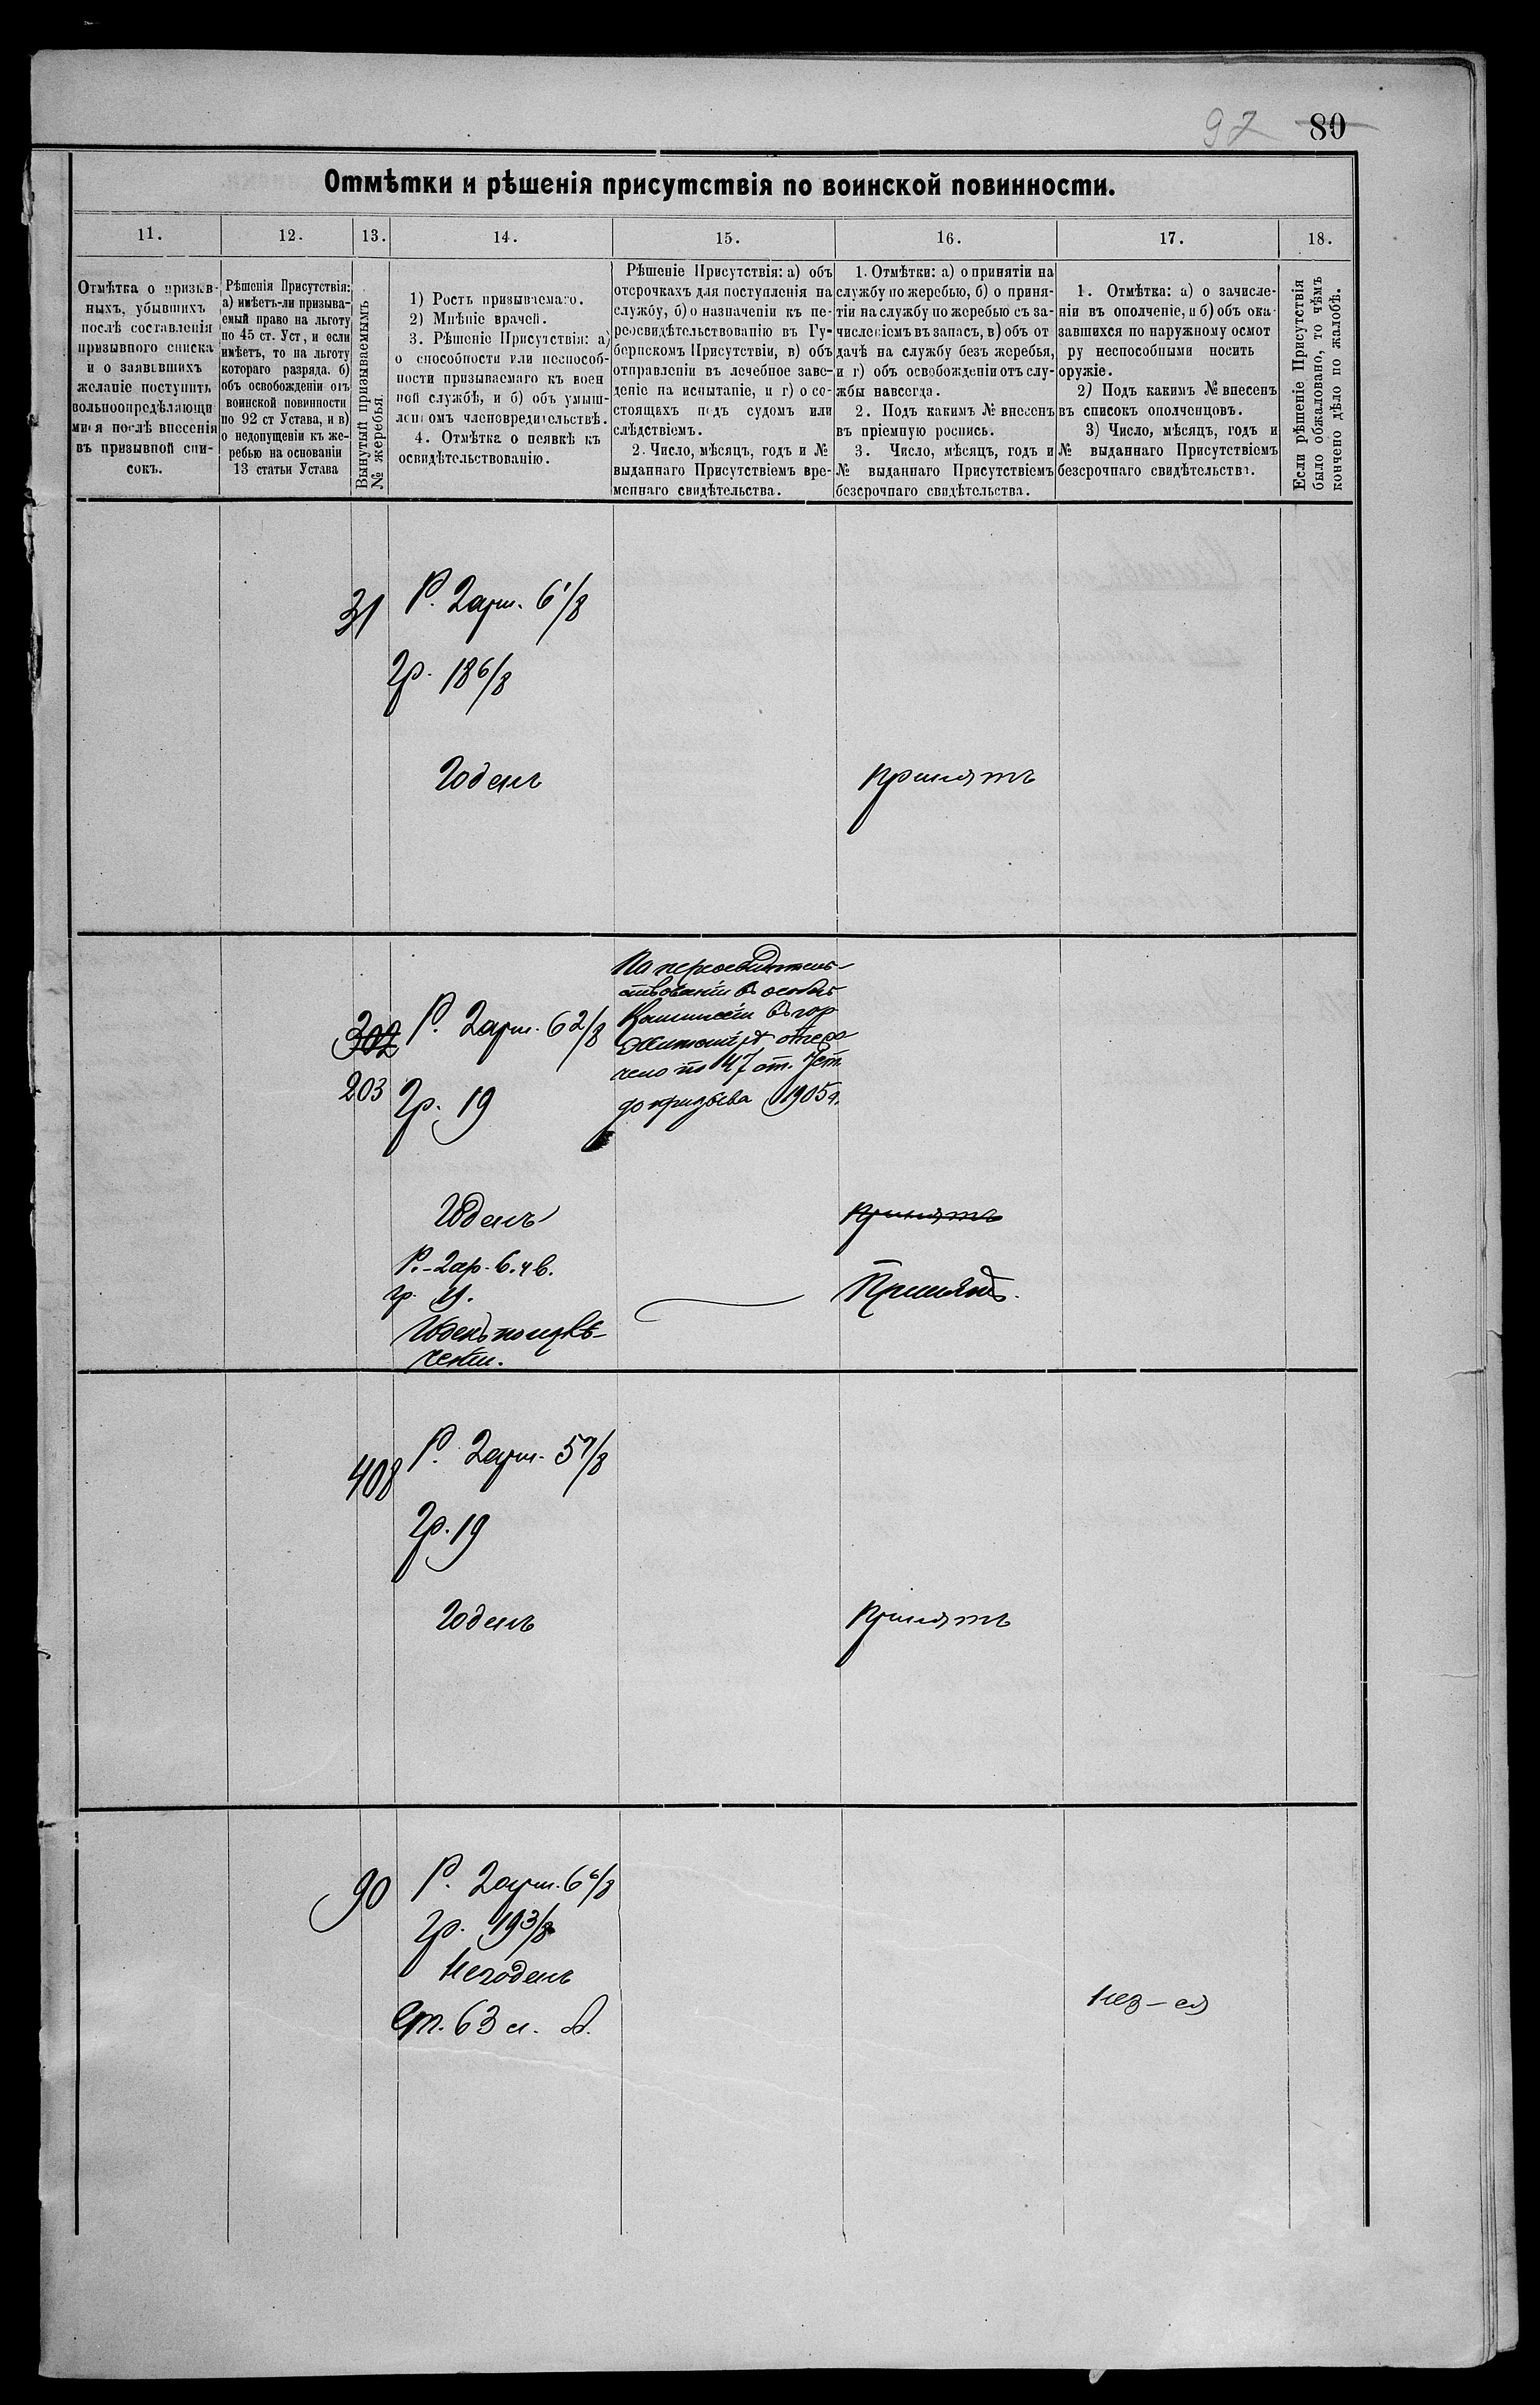 97 80
Отмѣтки и рѣшенія присутствія по воинской повинности.
11. 12. 13. 14. 15. 16. 17. 18.
Отмѣтка о призыв-
ныхъ, убывшихъ
послѣ составленія
призывного списка
и о заявившихъ
желаніе поступить
вольноопредѣляющи
мися послѣ внесенія
въ призывной спи-
сокъ.
Рѣшенія Присутствія:
а) имѣетъ-ли призыва-
емый право на льготу
по 45 ст. Уст, и если
имѣетъ, то на льготу
котораго разряда. б)
объ освобожденіи отъ
воинской повинности
по 92 ст Устава, и в)
о недопущеніи къ же-
ребью на основаніи
13 статьи Устава
Вынутый призываемымъ
№ жеребья.
1) Ростъ призываемаго.
2) Мнѣніе врачей.
3. Рѣшеніе Присутствія: а)
о способности или неспособ-
ности призываемаго къ воен
ной службѣ, и б) объ умыш-
ленномъ членовредительствѣ.
4. Отмѣтка о неявкѣ къ
освидѣтельствованію.
Рѣшеніе Присутствія: а) объ
отсрочкахъ для поступленія на
службу, б) о назначеніи къ пе-
реосвидѣтельствованію въ Гу-
бернскомъ Присутствіи, в) объ
отправленіи въ лечебное заве-
деніе на испытаніе, и г) о со-
стоящахъ подъ судомъ или
слѣдствіемъ.
2. Число, мѣсяцъ, годъ и №
выданнаго Присутствіемъ вре-
меннаго свидѣтельства.
1. Отмѣтки: а) о принятіи на
службу по жеребью, б) о приня-
тіи на службу по жеребью съ за-
численіемъ въ запасъ, в) объ от
дачѣ на службу безъ жеребья,
и г) объ освобожденіи отъ слу-
жбы навсегда.
2. Подъ какимъ № внесенъ
въ пріемную роспись.
3. Число, мѣсяцъ, годъ и
№ выданнаго Присутствіемъ
безсрочнаго свидѣтельства.
1. Отмѣтка: а) о зачисле-
ніи въ ополченіе, и б) объ ока
завшихся по наружному осмот
ру неспособными носить
оружіе.
2) Подъ какимъ № внесенъ
въ списокъ ополченцовъ.
3) Число, мѣсяцъ, годъ и
№ выданнаго Присутствіемъ
безсрочнаго свидѣтельства.
Если рѣшеніе Присутствія
было обжаловано, то чѣмъ
кончено дѣло по жалобѣ.
31 Р. 2арш. 6 1/8
Гр. 18 6/8
Годенъ принятъ
302 Р. 2арш. 6 2/8
203 Гр. 19
По переосвидѣтель-
ствованіи въ особой
Коммисіи въ гор
отсро
чено по 147 ст. Уст.
до призыва 1905 г.
Годенъ принятъ
Р.-2ар. 6.чв.
гр. 19. Принятъ.
Годенъ по излѣ-
ченіи.
408 Р. 2арш. 5 7/8
Гр. 19
Годенъ принятъ
90 Р. 2арш. 6 6/8
Гр. 19 3/8
Негоденъ
Ст. 63 л. А.